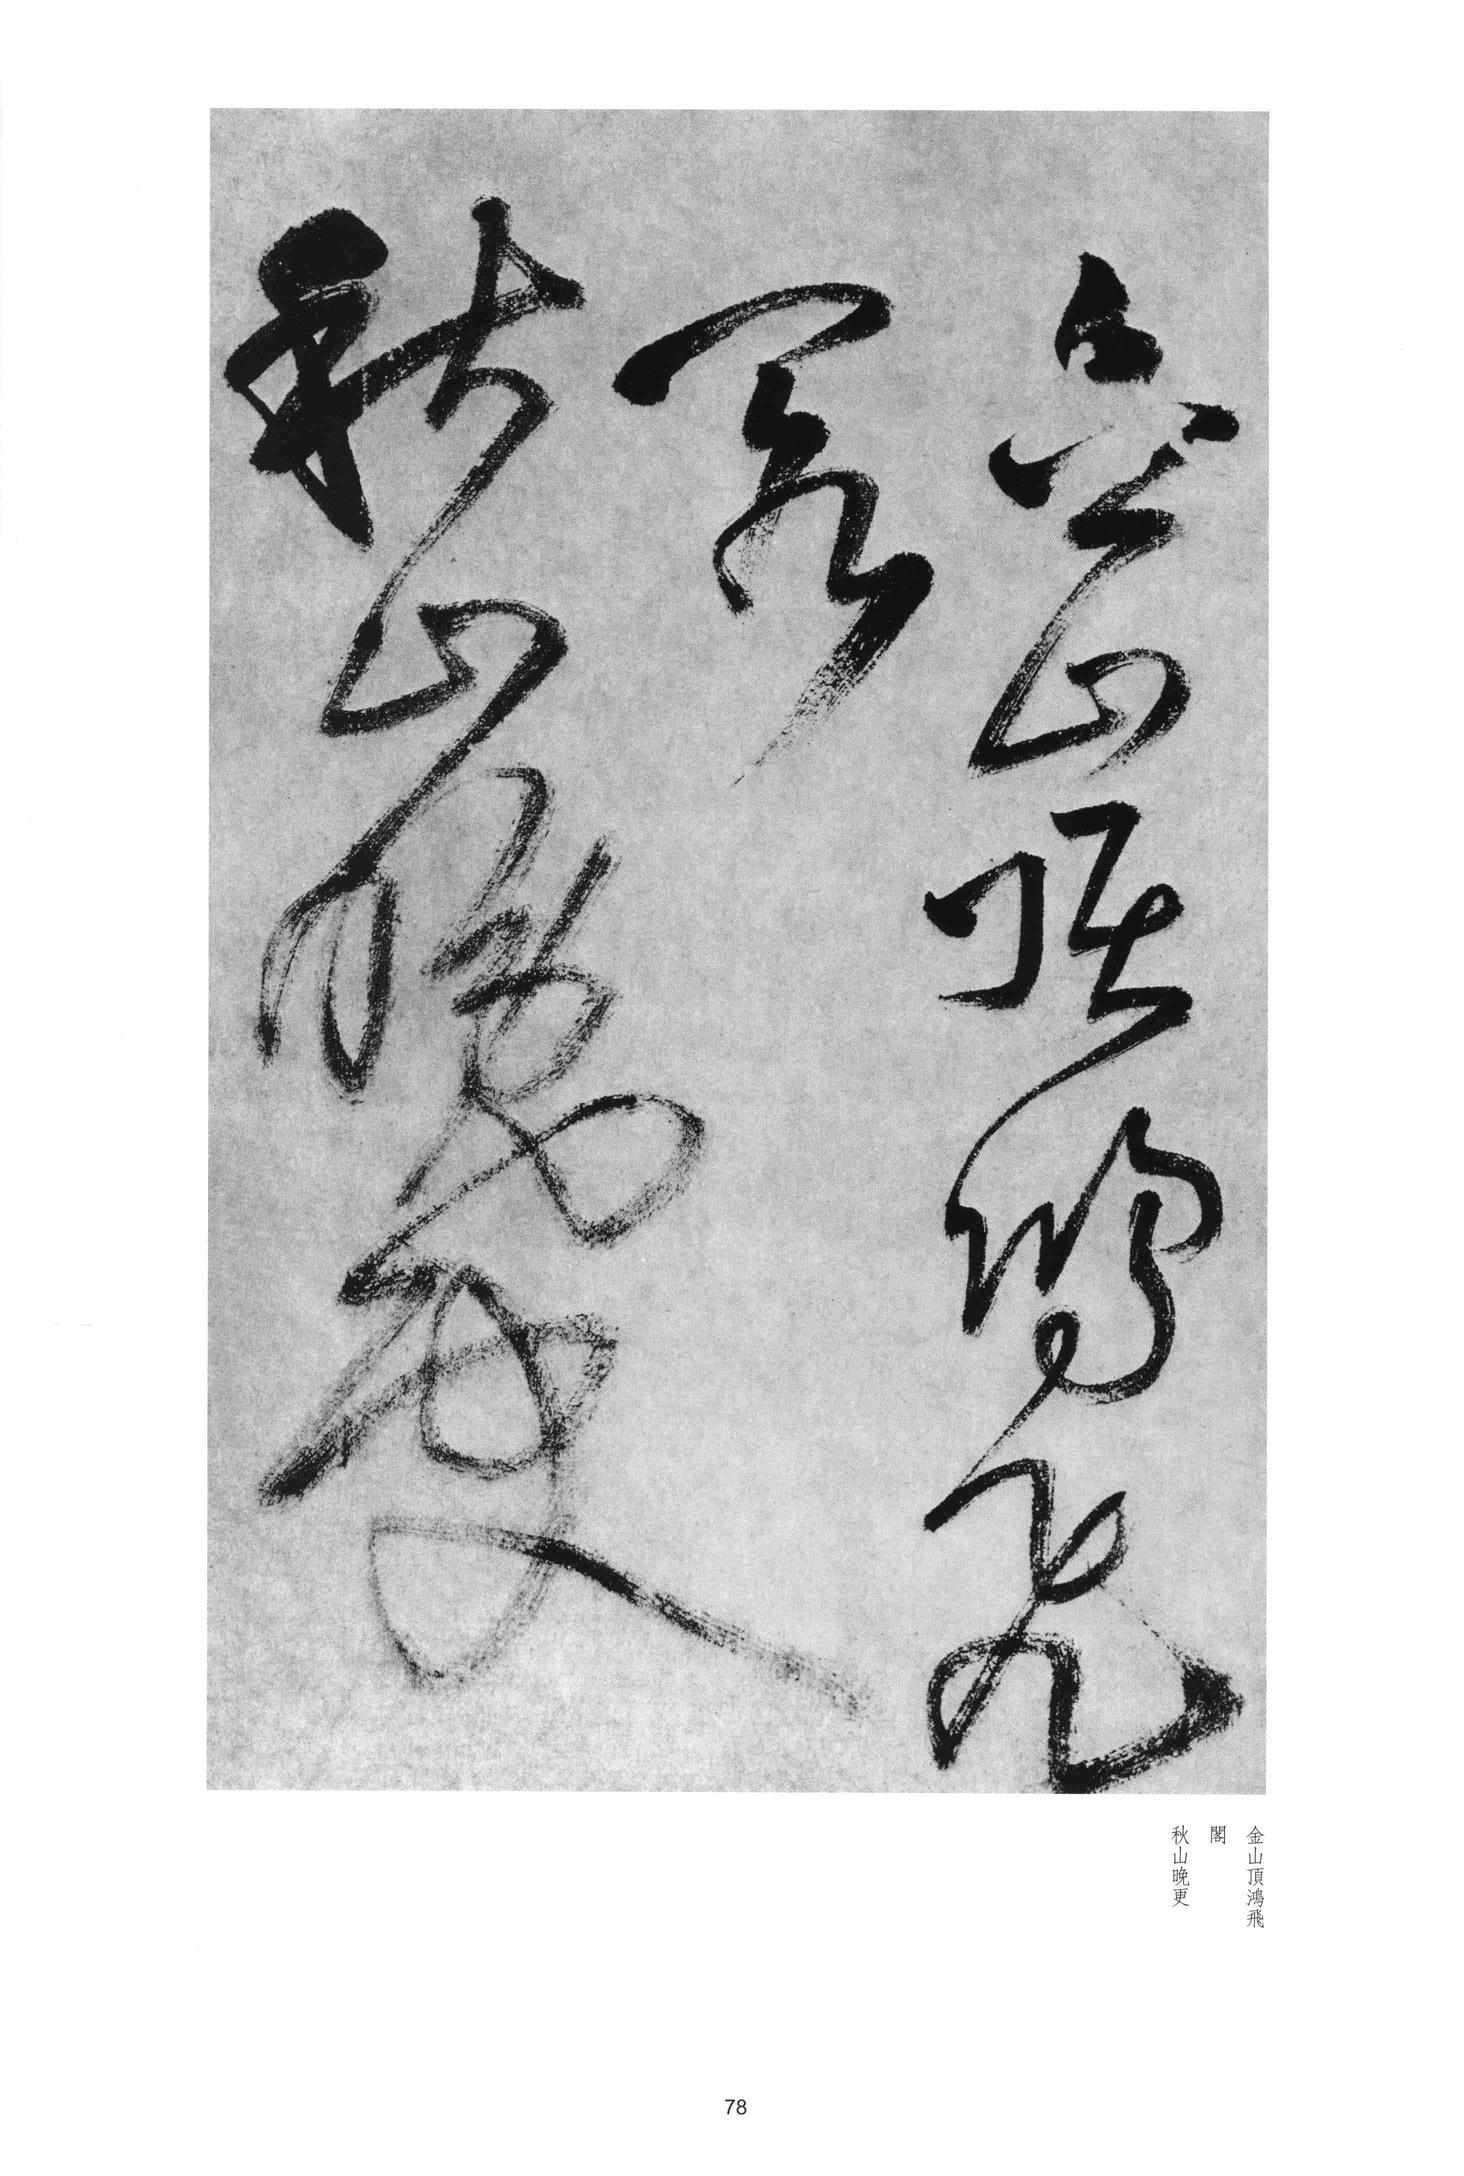 金山頂鴻飛
閣
秋山晚更
金山頂鴻飛
閣
秋山晚更
78